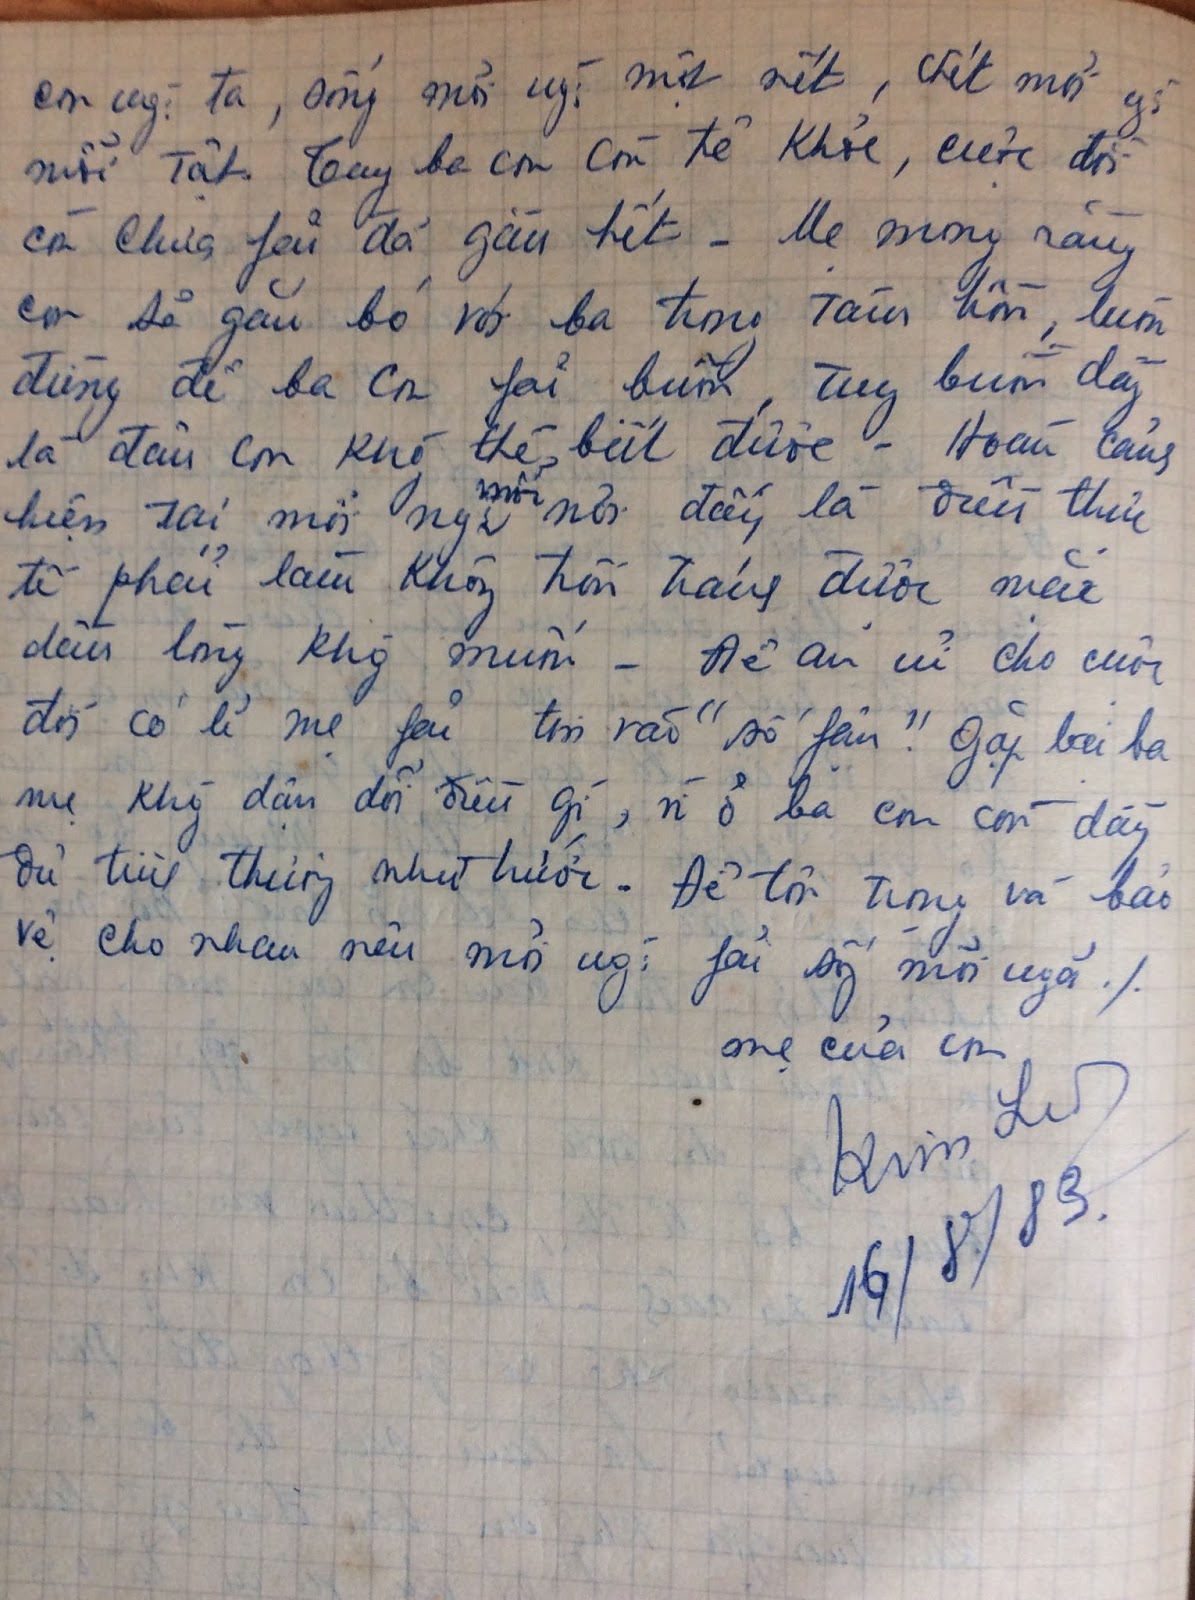 con ngì ta, sống mỗi ngì một nết, chết mỗi ngì
mỗi tật. Tuy ba con còn trẻ khỏe, cuộc đời
còn chưa fải đã gần hết - Mẹ mong rằng
con sẽ gắn bó với ba trong tâm hồn, luôn
đừng để ba con fải buồn, tuy buồn đây
là đâu con khg thể biết được - Hoàn cảnh
hiện tại mỗi ngì mỗi nơi đấy là điều thực
tế phải làm không trốn tránh được mặc
dầu lòng khg muốn - Để an ủi cho cuộc
đời có lẽ mẹ fải tin vào "số fận". Gặp lại ba
mẹ khg dặn dò điều gì, vì ở ba con còn đầy
đủ tình thương như trước. Để tôn trọng và bảo
vệ cho nhau nên mỗi ngì fải sống mỗi ngã ./.
mẹ của con
Kim
16/8/83.